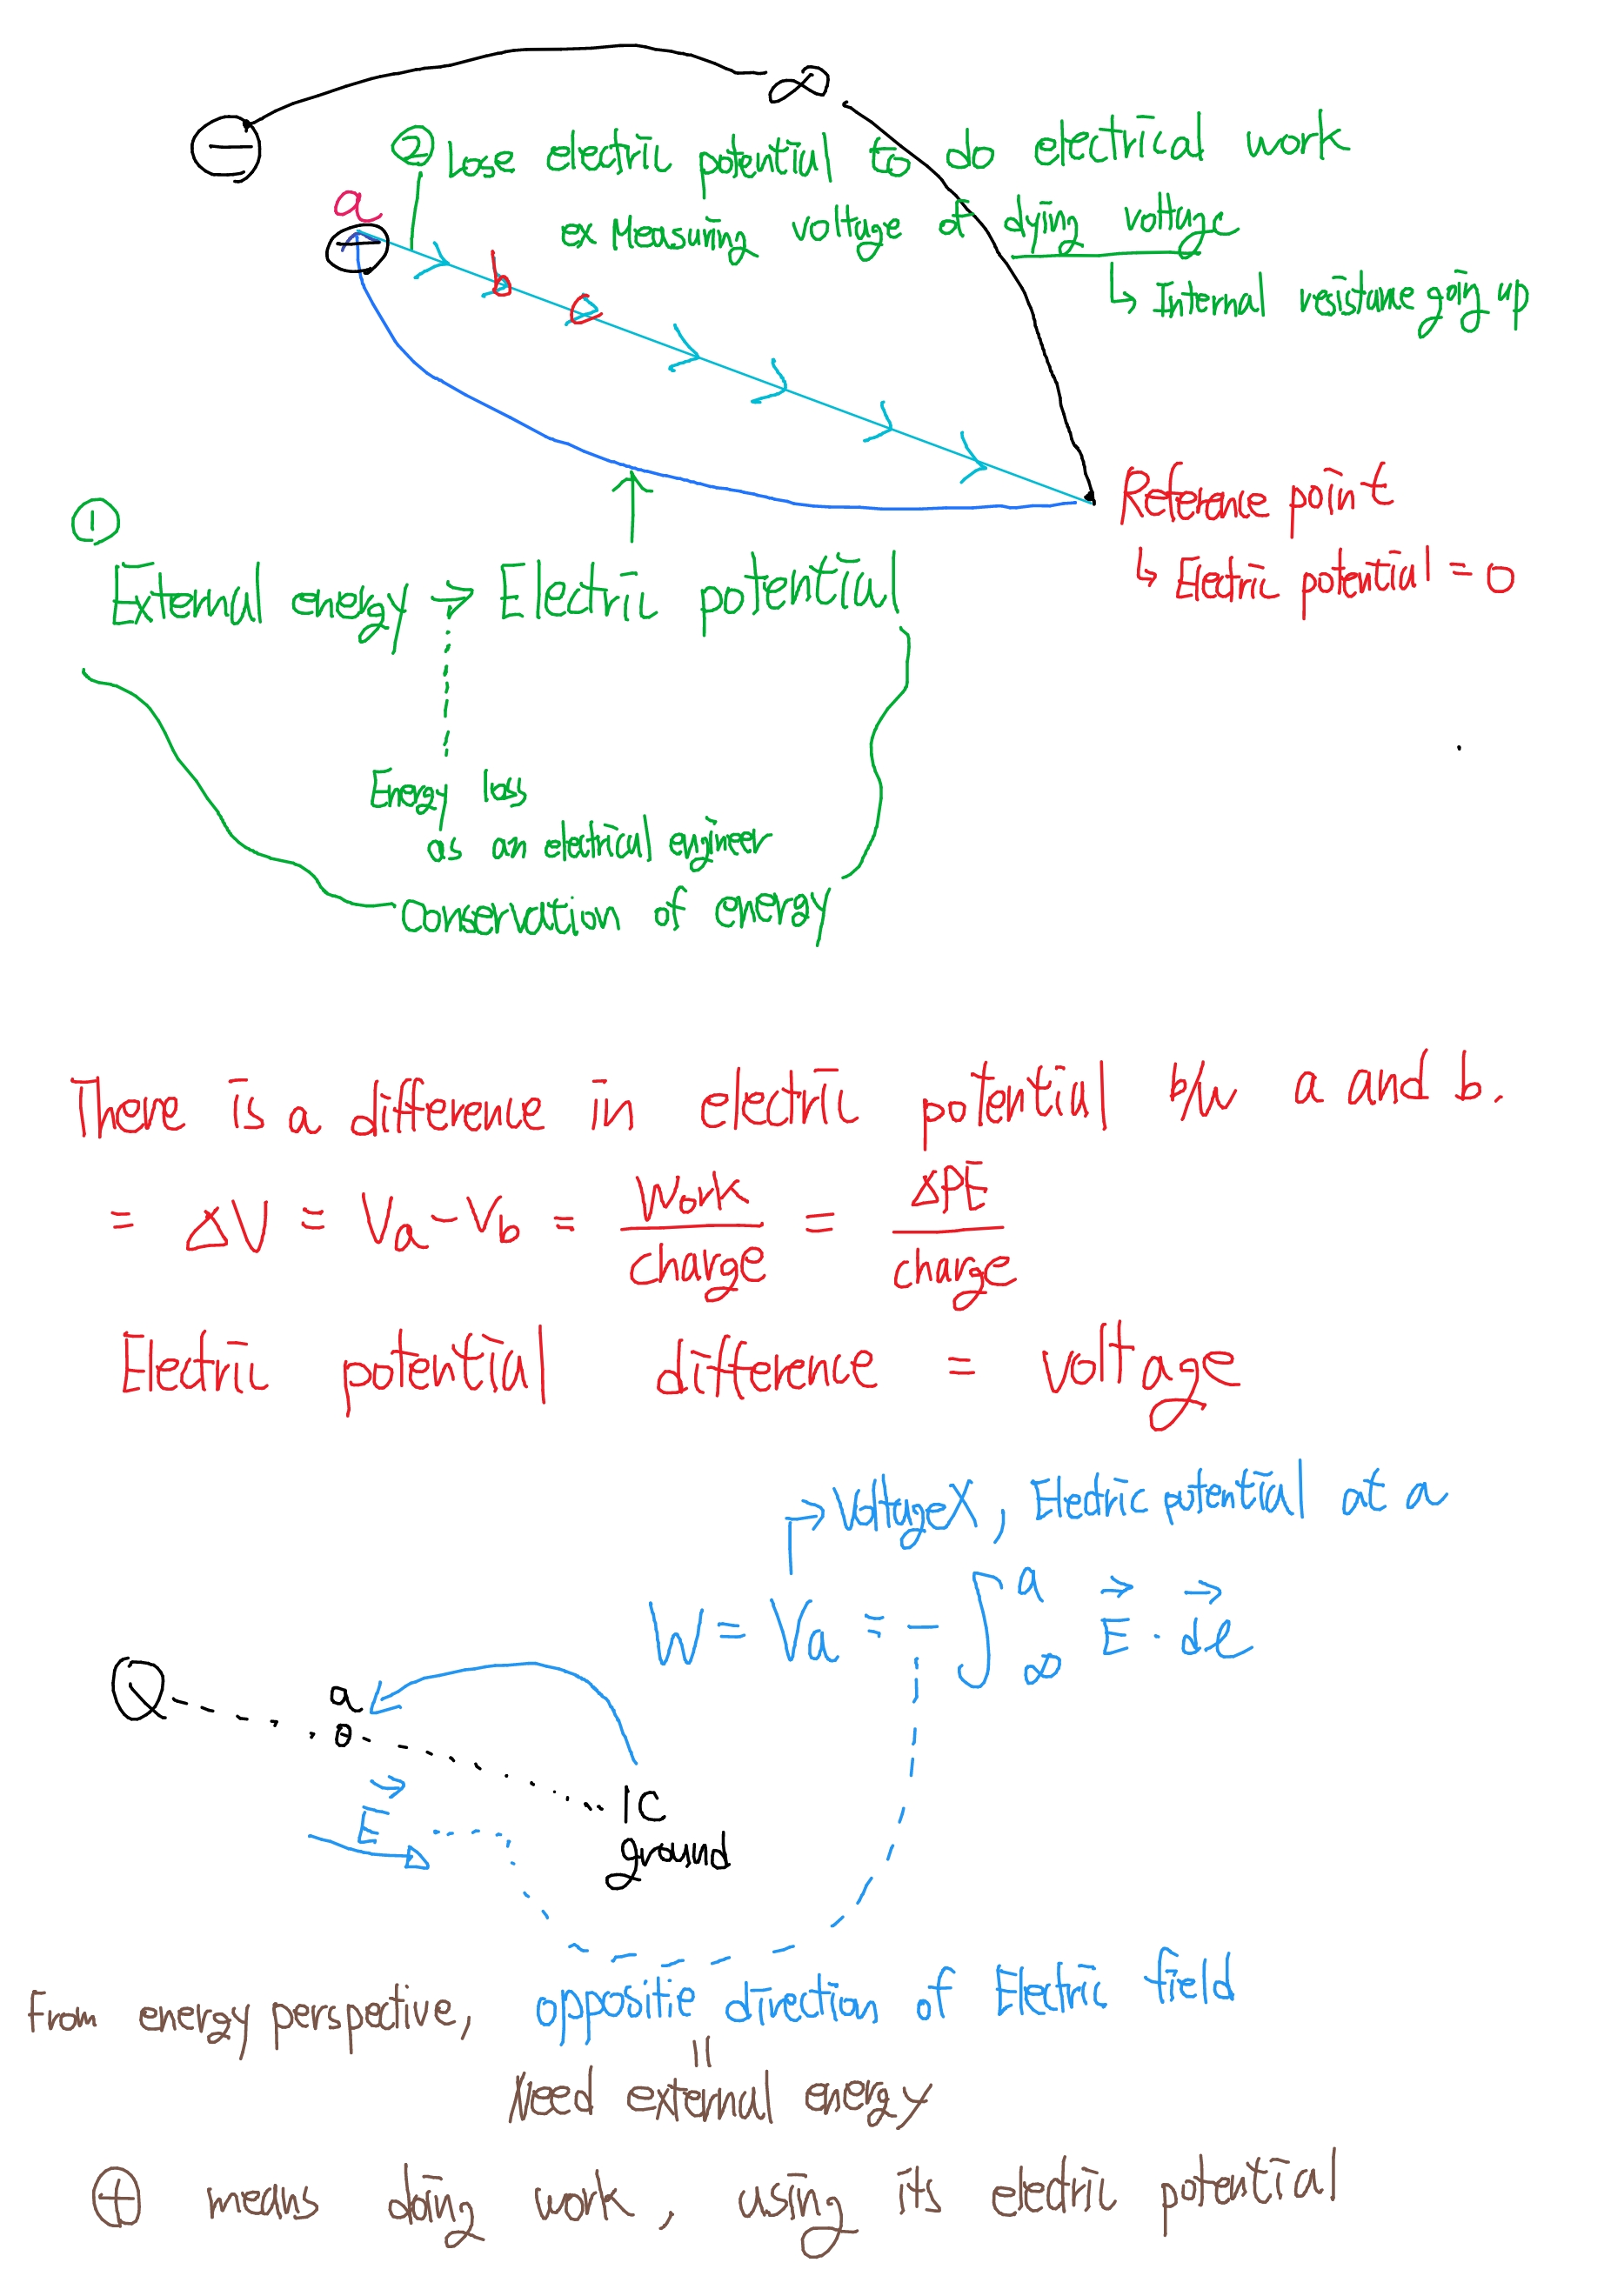 ∞
⊖
② Lose electric potential to do electrical work
a
ex Measuring voltage of dying voltage
⊖
b
↳ Internal resistance going up
c
Reference point
①
↳ Electric potential = 0
External energy → Electric potential
Energy loss
as an electrical engineer
conservation of energy
There is a difference in electric potential b/w a and b.
= ΔV = Va - Vb = Work/charge = ΔPE/charge
Electric potential difference = voltage
→ Voltage X, Electric potential at a
W = Va = - ∫∞^a E⃗ · dℓ⃗
Q
a
1C
E⃗
ground
From energy perspective, oppositie direction of Electric field
=
Need external energy
⊕ means doing work, using its electric potential